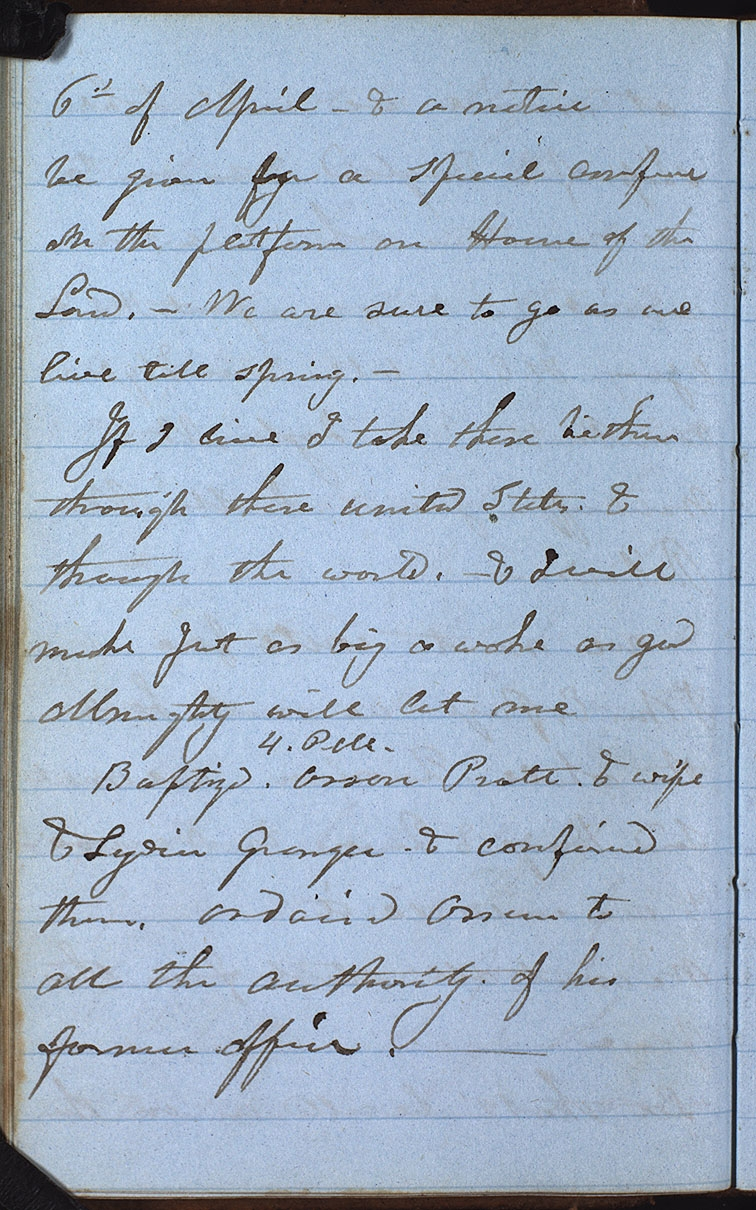 6th of April – & a notice
be given for a special conference
on the platform on House of the
Lord. – We are sure to go as we
live till spring. –
If I live I take these brethren
through these united States. &
through the world. – & I will
make Just as big a wake as god
Almighty will let me
4. P.M.
Baptizd. Orson Pratt. & wife
& Lydia Granger. & confirmd
them. ordaind Orson to
all the authority. of his
former office.